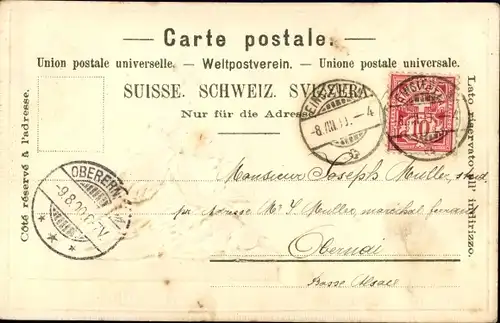 Carte postale.
Union postale universelle. — Weltpostverein. — Unione postale universale.
SUISSE. SCHWEIZ. SVIZZERA.
Nur für die Adresse.
Côté réservé à l'adresse.
Lato riservato all' indirizzo.
10
-4
Monsieur Joseph Muller, stud.
par Adresse Mr J. Muller, maréchal ferrant
Obernai
Basse Alsace